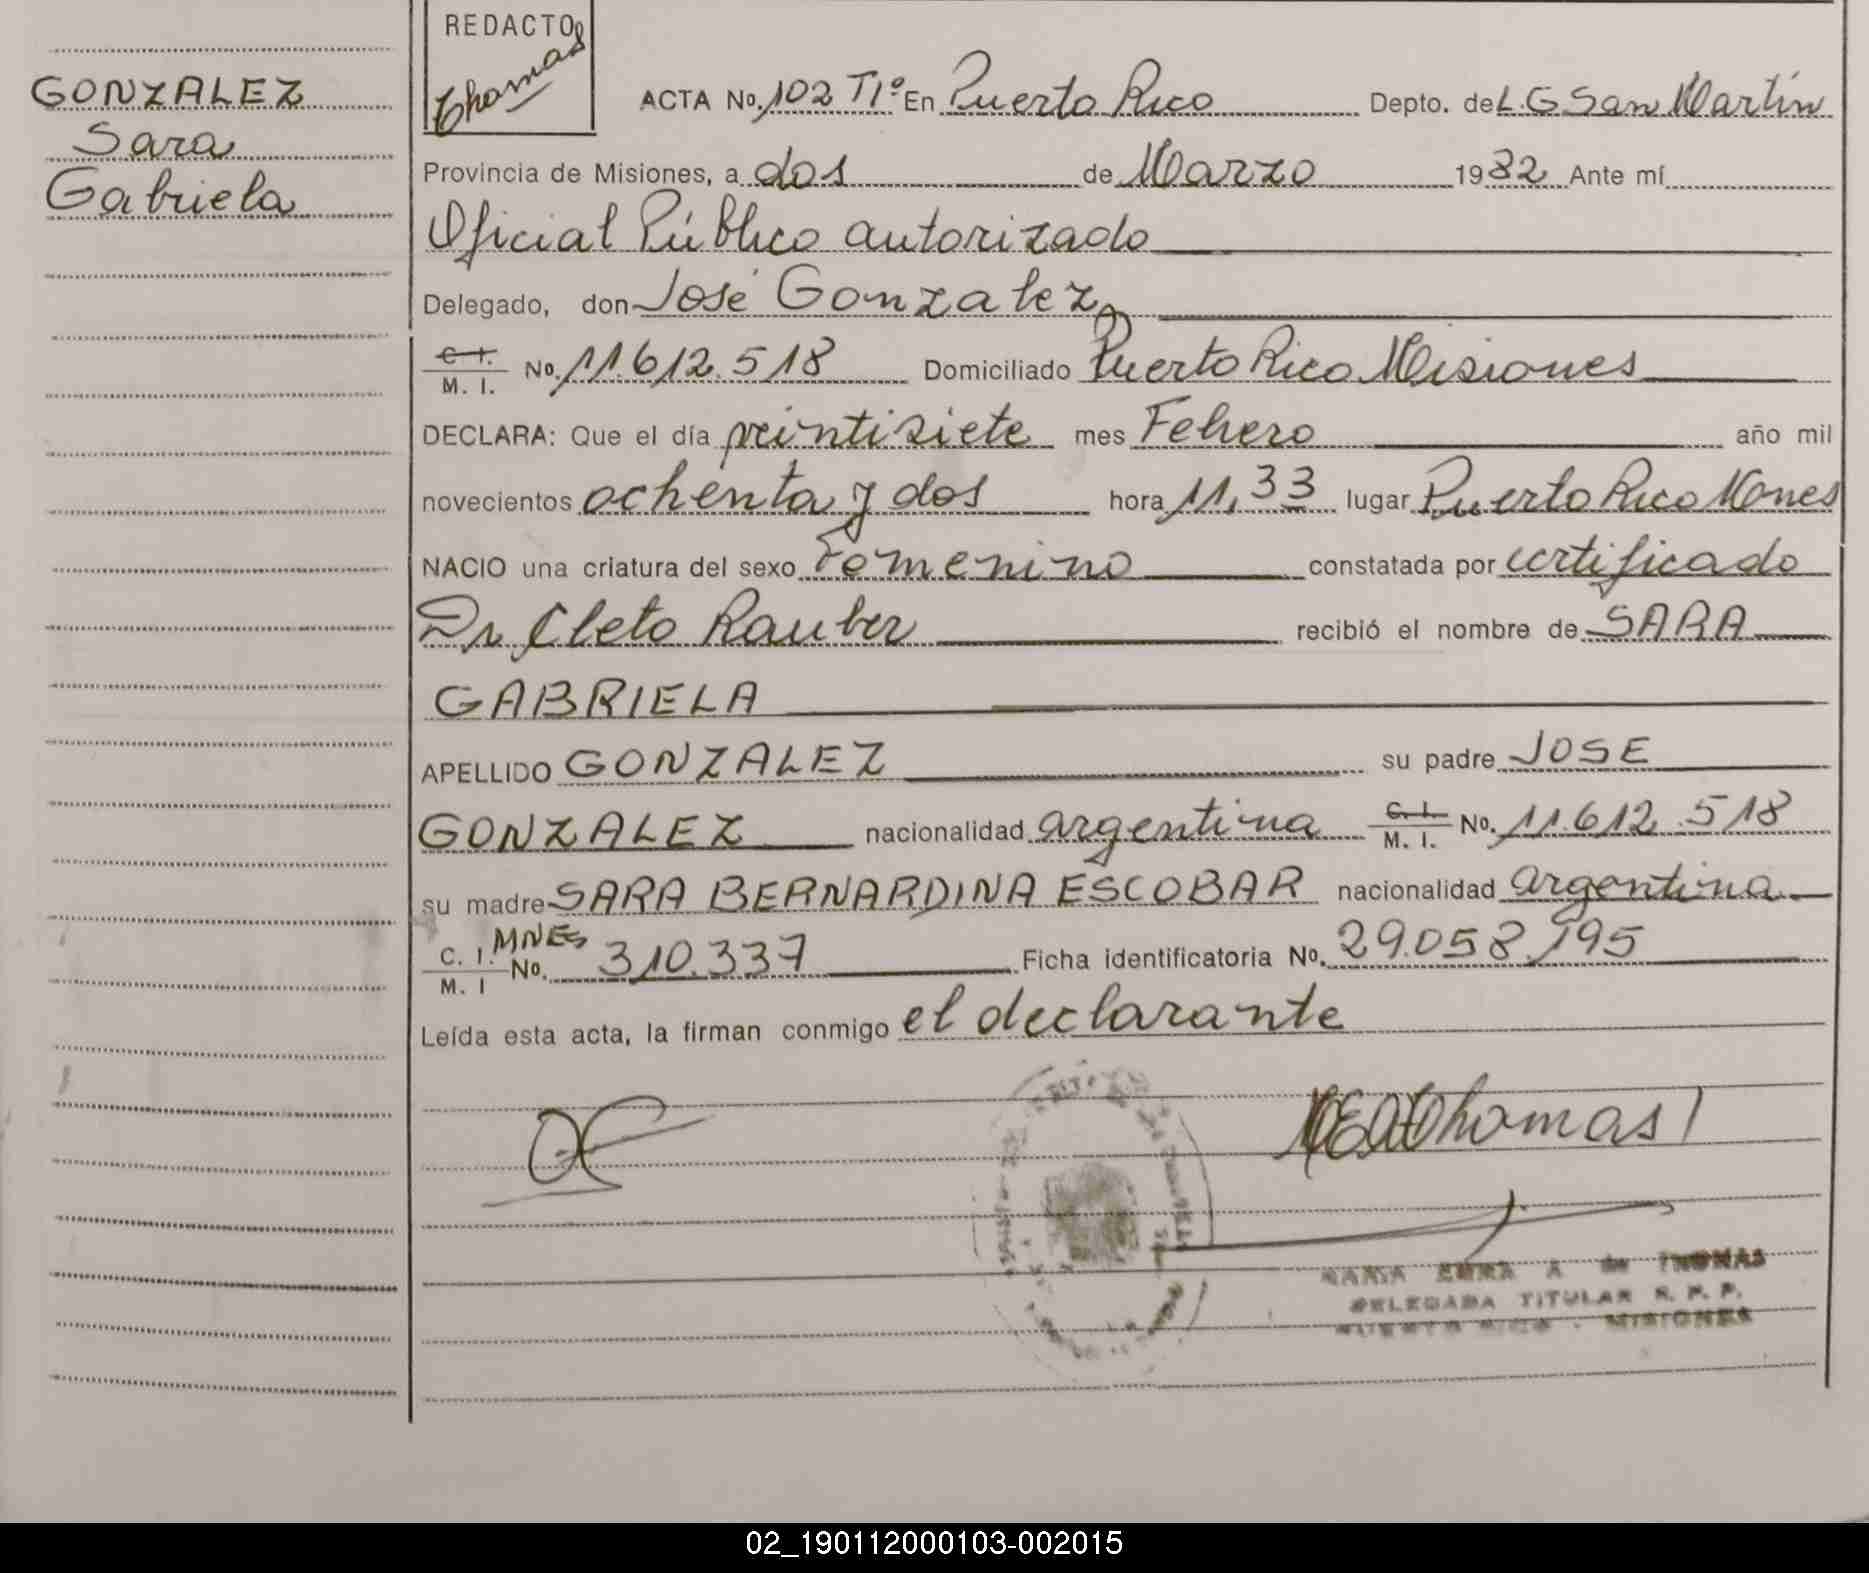 GONZALEZ
Sara
Gabriela
REDACTO
Thomas
ACTA No. 102 T1º En Puerto Rico Depto. de L. G San Martín
Provincia de Misiones, a dos de Marzo 1982 Ante mí
Oficial Público autorizado
Delegado, don José Gonzalez
C. I. M. I. No. 11.612.518 Domiciliado Puerto Rico Misiones
DECLARA: Que el día veintisiete mes Febrero año mil
novecientos ochenta y dos hora 11,33 lugar Puerto Rico Mones
NACIO una criatura del sexo Femenino constatada por certificado
Dr. Cleto Rauber recibió el nombre de SARA
GABRIELA
APELLIDO GONZALEZ su padre JOSE
GONZALEZ nacionalidad argentina C. I. M. I. No. 11.612.518
su madre SARA BERNARDINA ESCOBAR nacionalidad argentina
C. I. M. I No. MNES 310.337 Ficha identificatoria No. 29.058.195
Leída esta acta, la firman conmigo el declarante
Thomas
A de THOMAS
DELEGADA TITULAR R. P. P.
PUERTO RICO - MISIONES
02_190112000103-002015